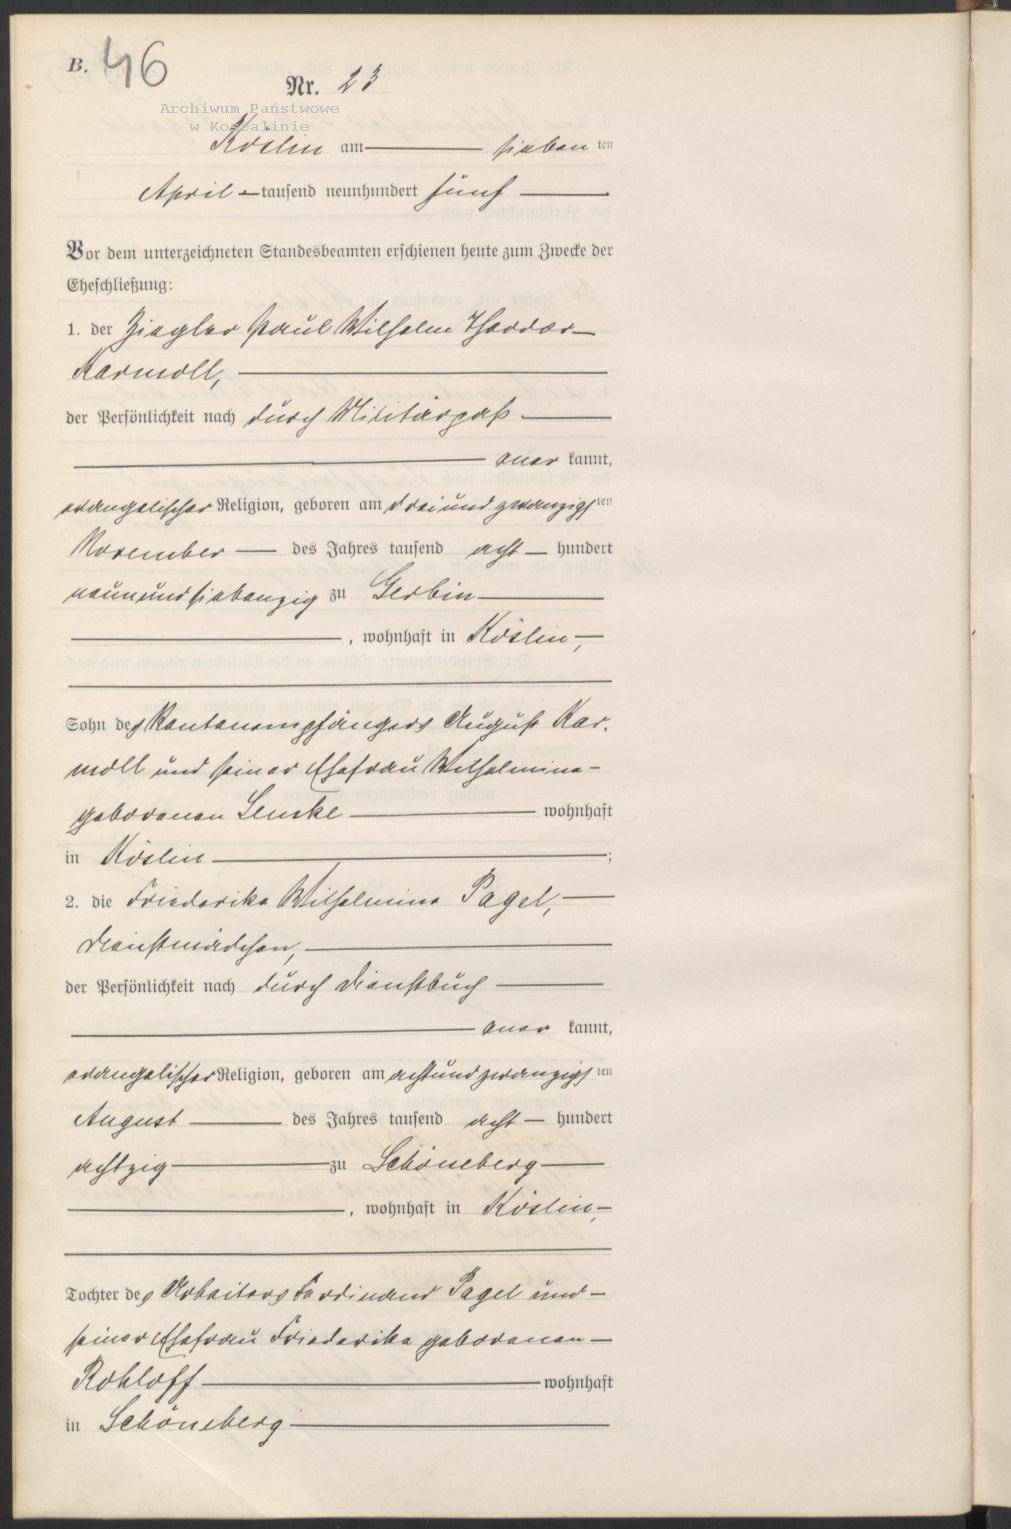 B. 46
Nr. 23
Archiwum Państwowe
w Koszalinie
Köslin am sieben ten
April tausend neunhundert fünf
Vor dem unterzeichneten Standesbeamten erschienen heute zum Zwecke der
Eheschließung:
1. der Ziegler Paul Wilhelm Theodor
Karmoll,
der Persönlichkeit nach durch Militärpaß
aner kannt,
evangelischer Religion, geboren am dreiundzwanzigs ten
November des Jahres tausend acht hundert
neunundsiebenzig zu Gerbin
, wohnhaft in Köslin,
Sohn des Rentenempfängers August Kar-
moll und seiner Ehefrau Wilhelmine
geborenen Lemke wohnhaft
in Köslin ;
2. die Friederike Wilhelmine Pagel,
Dienstmädchen,
der Persönlichkeit nach durch Dienstbuch
aner kannt,
evangelischer Religion, geboren am achtundzwanzigs ten
August des Jahres tausend acht hundert
achtzig zu Schöneberg
, wohnhaft in Köslin,
Tochter des Arbeiters Ferdinand Pagel und
seiner Ehefrau Friederike geborenen
Rohloff wohnhaft
in Schöneberg